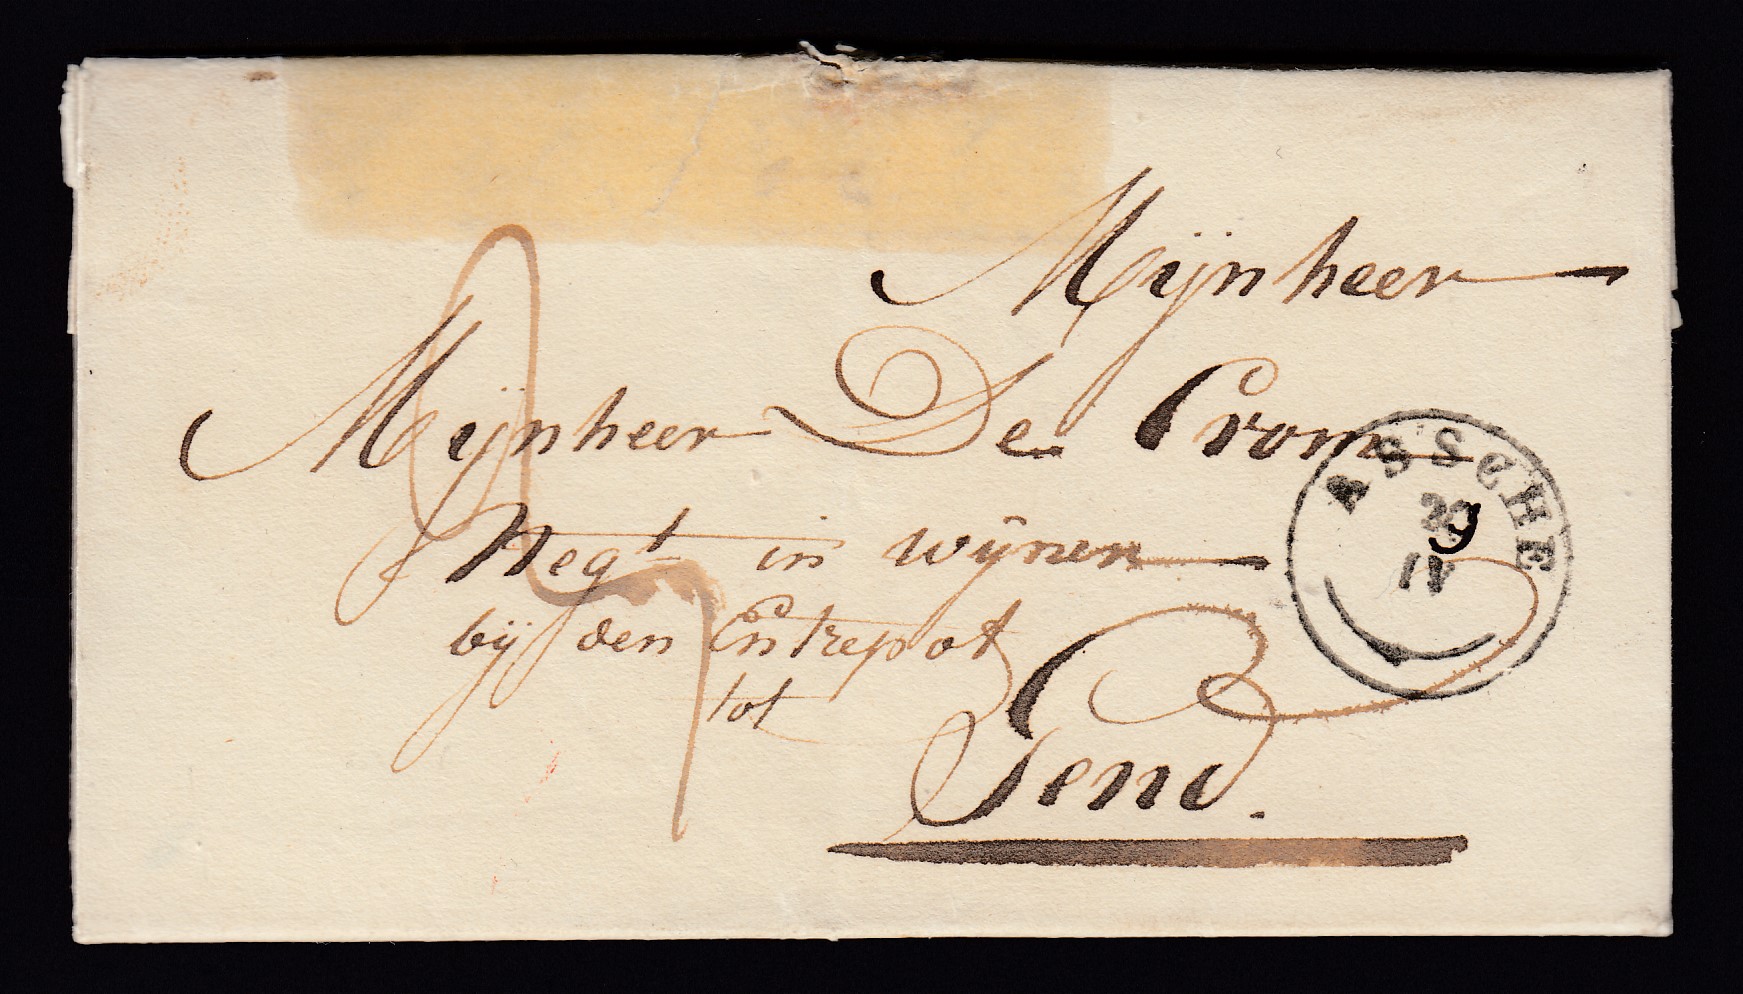 Mijnheer
Mijnheer De Crom
Negt in wijnen
bij den Entrepot
tot
Gend.
ASSCHE
9
IV